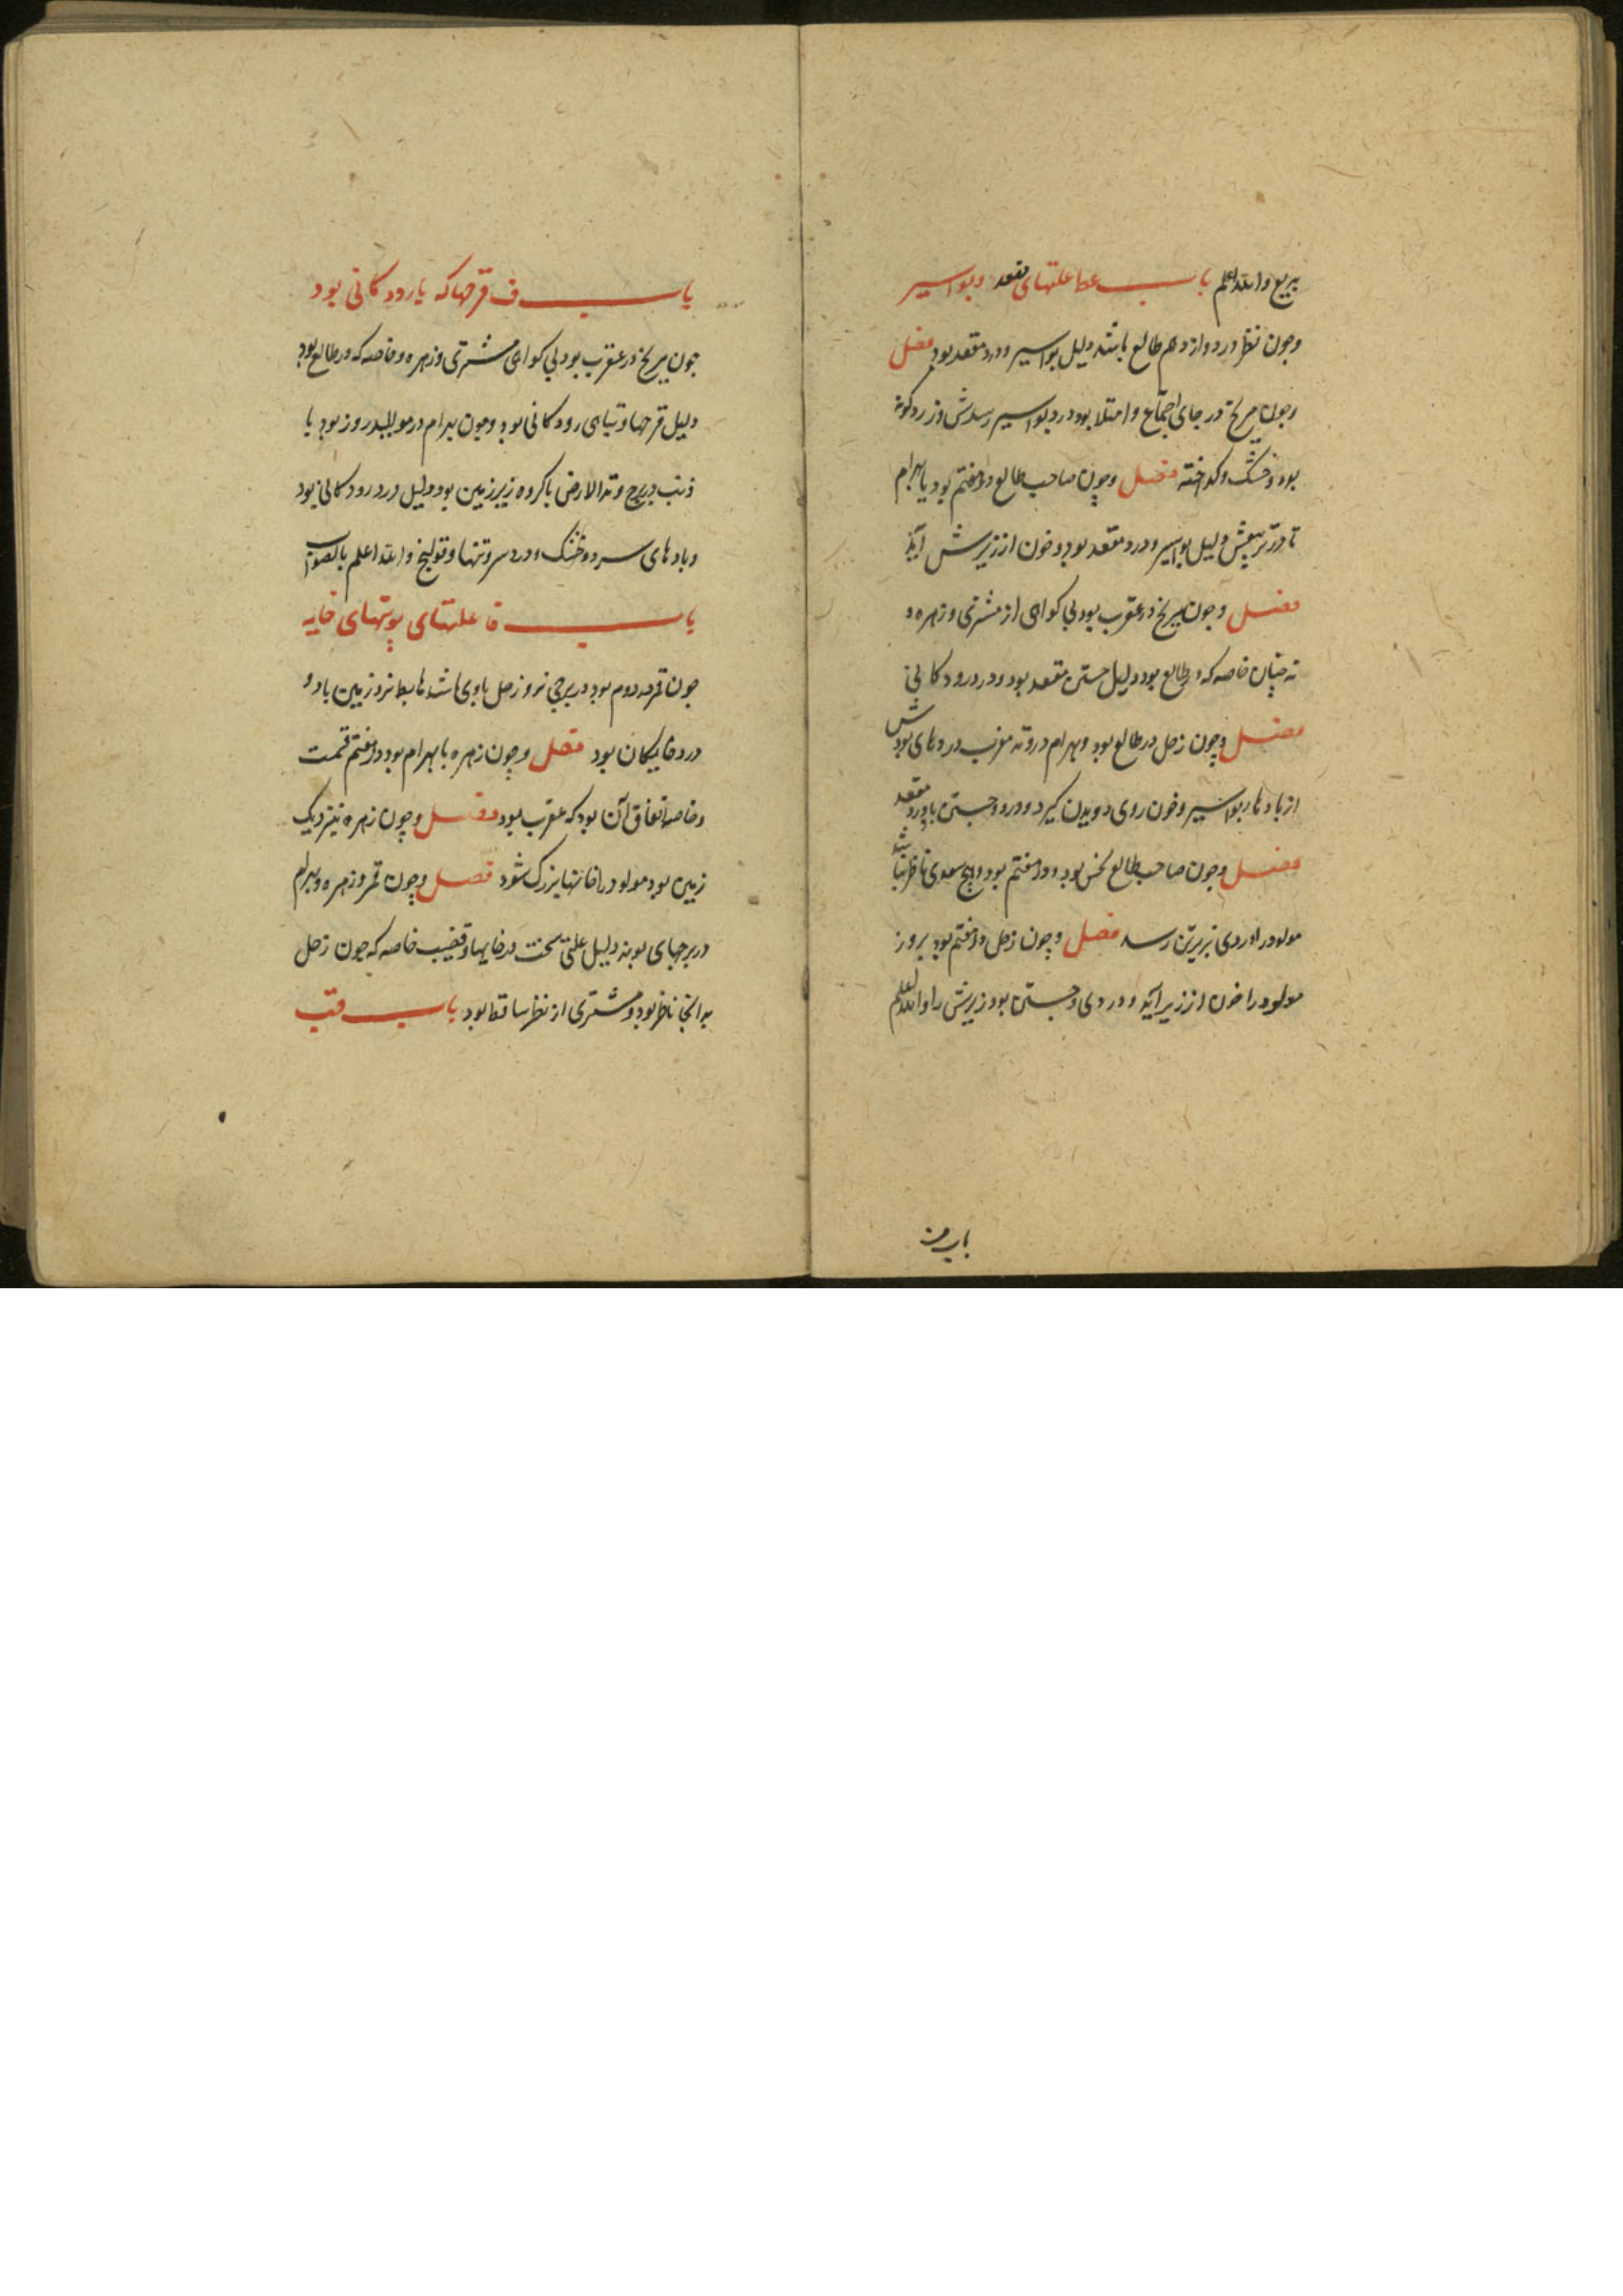 بربع والله اعلم باب عط علتهای مقعد و بواسیر
وچون نظر در دوازدهم طالع باشد دلیل بواسیر و درد مقعد بود فصل
وچون مریخ در جای اجتماع و امتلا بود درد بواسیر رسدش و زرد کونه
بود و خشک و کداخته فصل وچون صاحب طالع در هفتم بود یا بهرام
تا در تربیعش دلیل بواسیر و درد مقعد بود و خون از زیرش آید
فصل وچون مریخ در عقرب بود بی کواهی از مشتری و زهره و
نه چنان خاصه که در طالع بود دلیل جستن مقعد بود و درد رودکانی
فصل وچون زحل در طالع بود و بهرام در وتد مغرب دردهای بودش
از بادها و بواسیر و خون روی دویدن کیرد و درد و جستن باد و درد مقعد
فصل وچون صاحب طالع نحس بود و در هفتم بود و هیچ سعدی ناظر نباشد
مولود را دردی بزیرین رسد فصل وچون زحل در هفتم بود بروز
مولود را خون از زیر آید و دردی و جستن بود زیرش را والله اعلم
باب ف قرحها که با رودکانی بود
چون مریخ در عقرب بود بی کواهی مشتری و زهره و خاصه که در طالع بود
دلیل قرحها و تباهی رودکانی بود وچون بهرام در موالید روز بود با
ذنب در برج وتد الارض با کروه زیر زمین بود دلیل درد رودکانی بود
و بادهای سرد و خشک و درد سر و تنها و قولنج والله اعلم بالصواب
باب فا علتهای پوتهای خایه
چون قمر دوم بود در برجی نر و زحل باوی باشد هابط نر و زمین باد و
درد خایکان بود فصل وچون زهره با بهرام بود در هفتم قمت
و خاصه اتفاق آن بود که عقرب بود فصل وچون زهره نیز دیک
زمین بود مولود را خانتها بزرک شود فصل وچون قمر و زهره و بهرام
در برجهای بوند دلیل علتی سخت در خایها و قضیب خاصه که چون زحل
به آنجا ناظر بود و مشتری از نظر ساقط بود باب فب